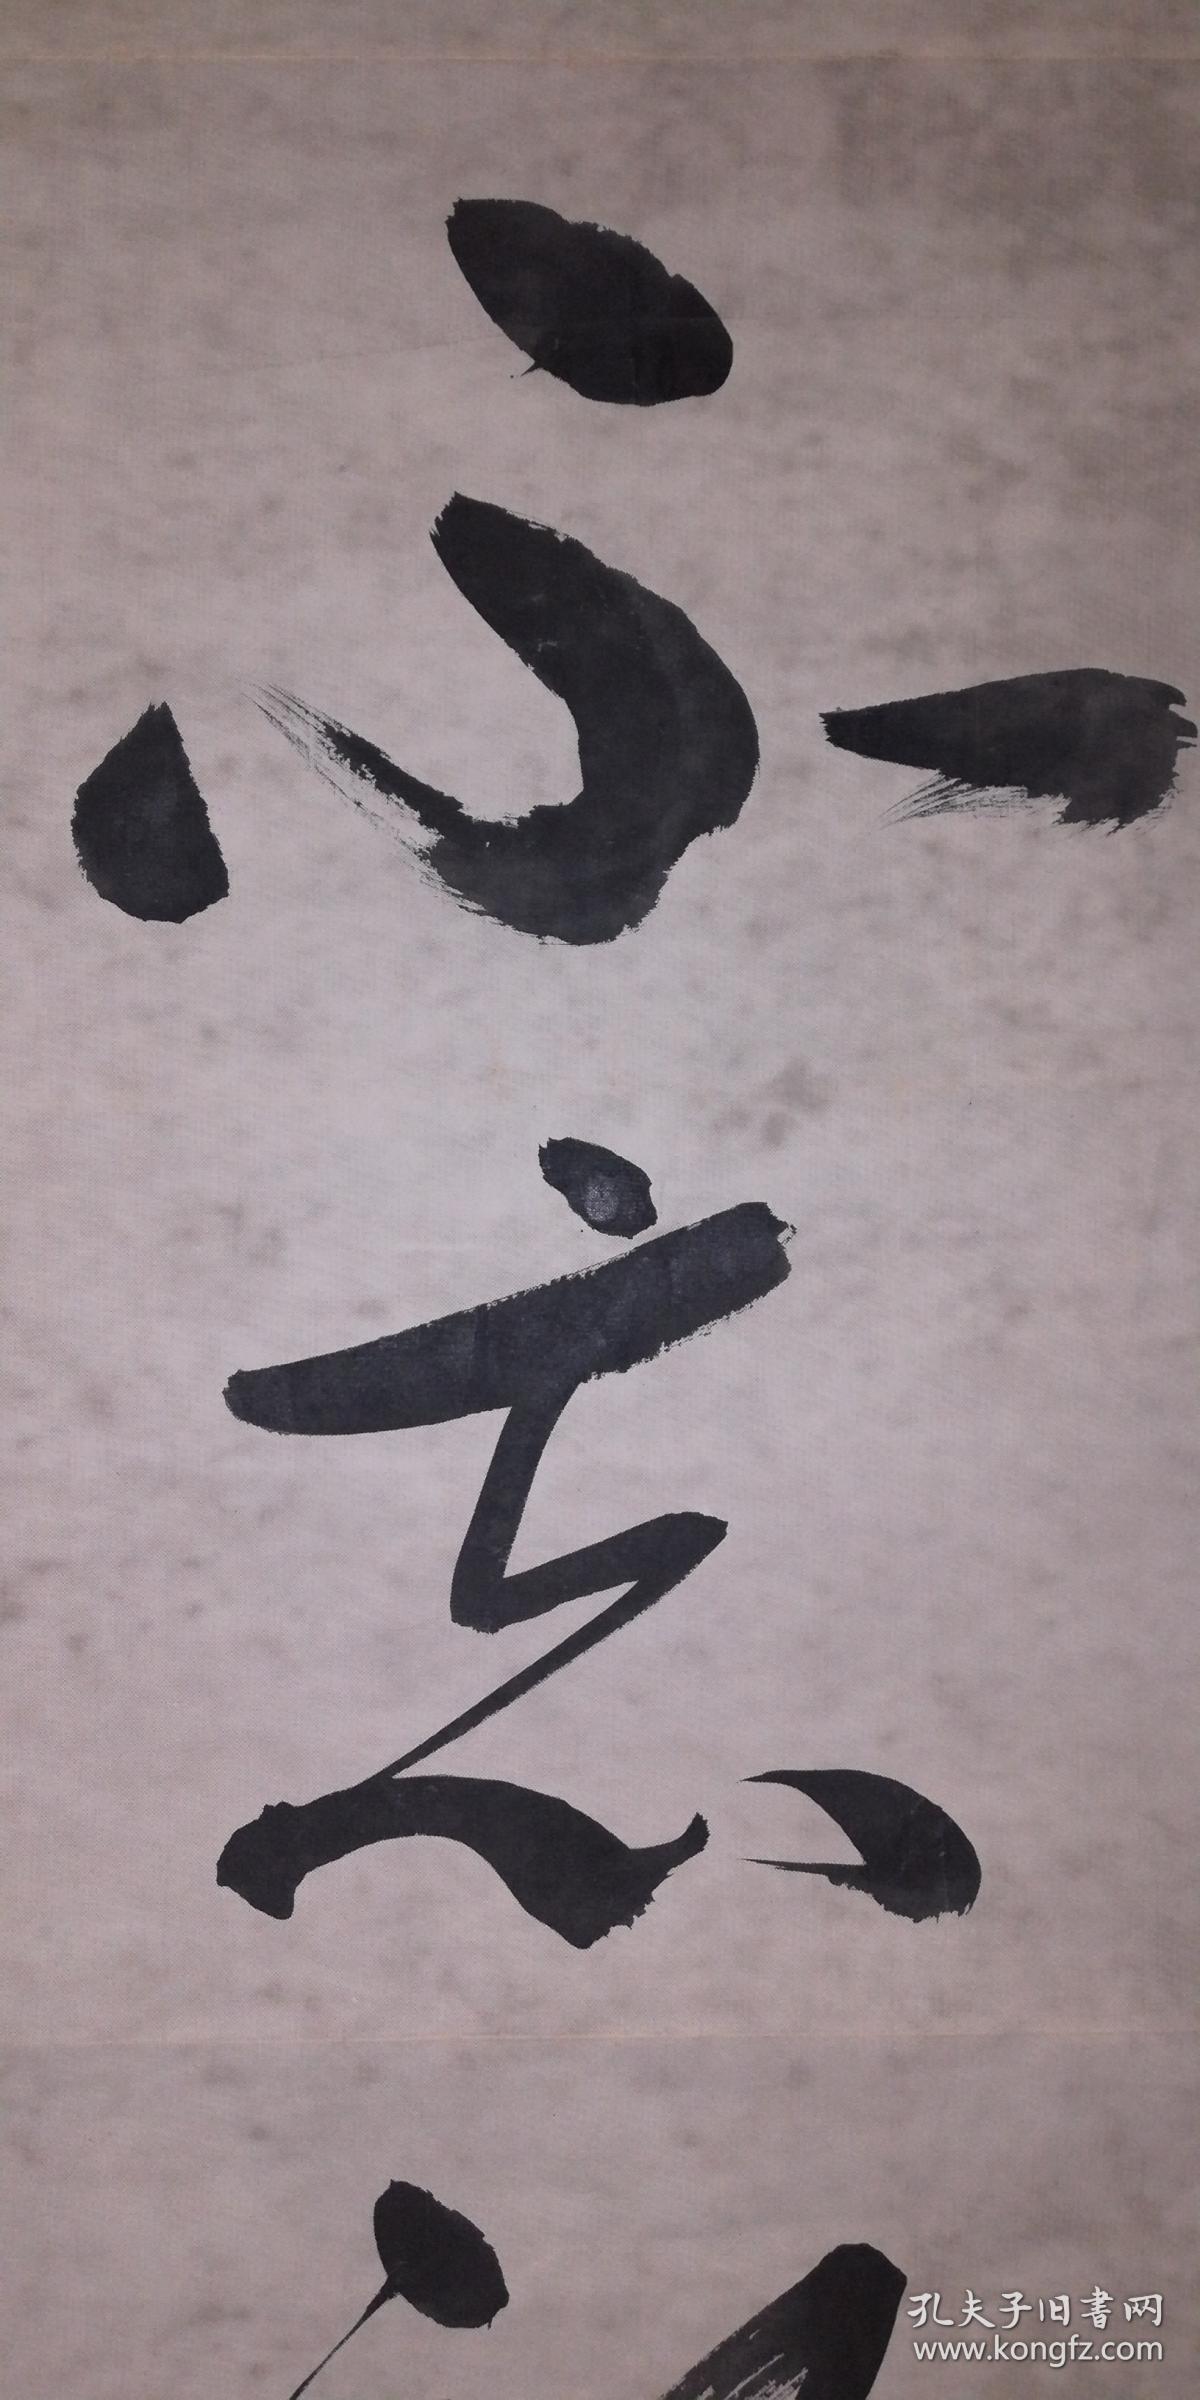 心忘
孔夫子旧書网
www.kongfz.com